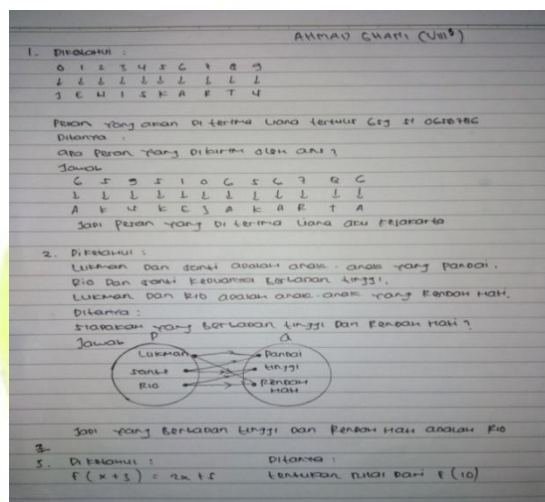 AHMAD GHANI (VIII³)
1. Diketahui :
0 1 2 3 4 5 6 7 8 9
↓ ↓ ↓ ↓ ↓ ↓ ↓ ↓ ↓ ↓
J E N I S K A R T U
Pesan yang akan di terima Liana tertulis 659 51 0656786
Ditanya :
apa pesan yang dikirim oleh ani ?
Jawab
6 5 9 5 1 0 6 5 6 7 8 6
↓ ↓ ↓ ↓ ↓ ↓ ↓ ↓ ↓ ↓ ↓ ↓
A K U K E J A K A R T A
Jadi pesan yang di terima Liana aku kejakarta
2. Diketahui :
Lukman dan santi adalah anak-anak yang pandai.
Rio dan santi keduanya berbadan tinggi.
Lukman dan Rio adalah anak-anak yang Rendah Hati.
Ditanya :
siapakah yang berbadan tinggi dan Rendah Hati ?
Jawab P Q
Lukman Pandai
santi tinggi
Rio Rendah
Hati
Jadi yang berbadan tinggi dan Rendah Hati adalah Rio
3. Diketahui : Ditanya :
F(x+3) = 2x+5 tentukan nilai dari F(10)